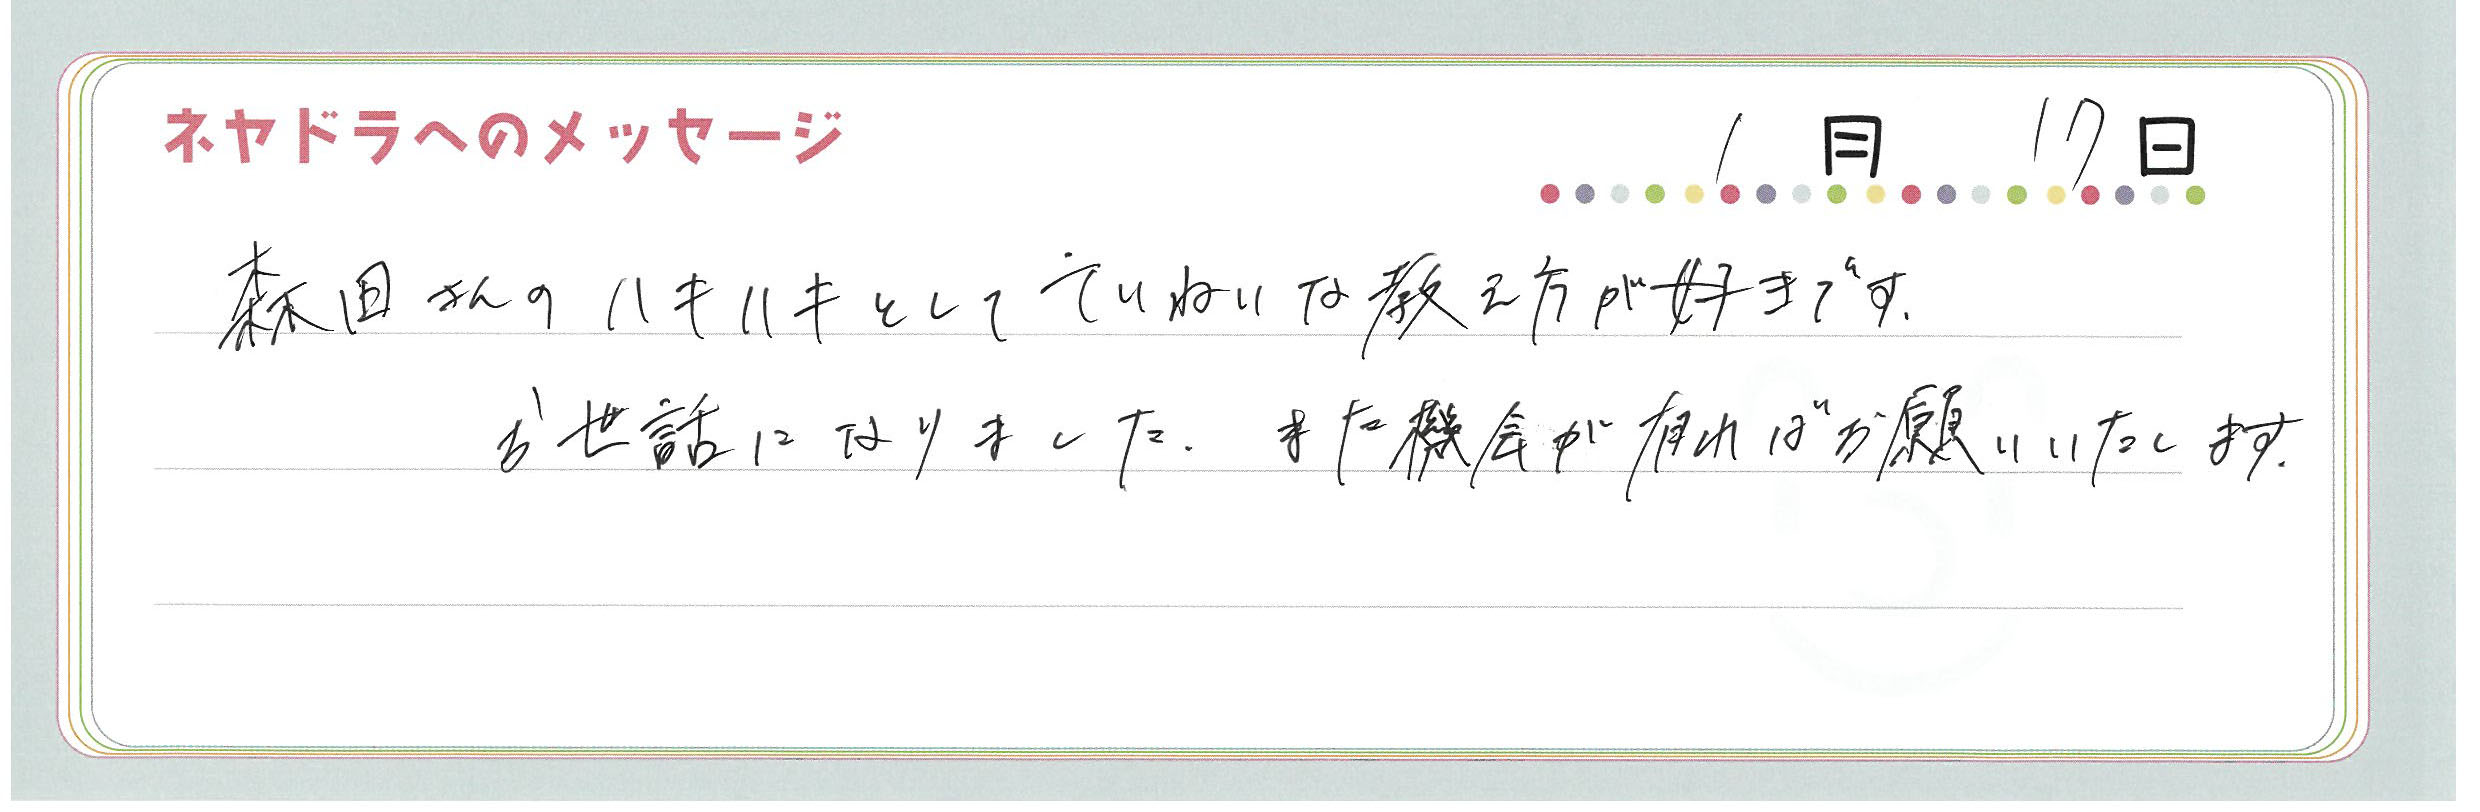 ネヤドラへのメッセージ
1月 17日
森田さんのハキハキとしてていねいな教え方が好きです.
お世話になりました. また機会が有ればお願いいたします.